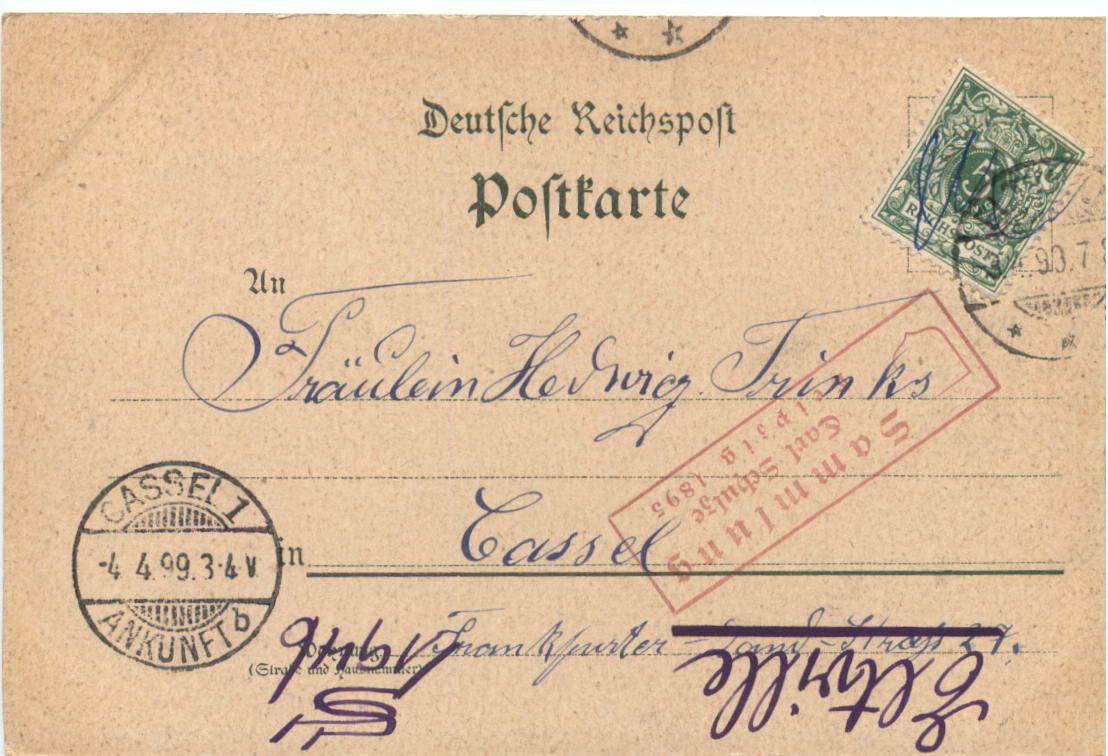 Deutsche Reichspost
Postkarte
REICHSPOST
90.7
An
Fräulein Hedwig Trinks
Sammlung
Carl Schulze
Leipzig 1895
CASSEL 1
-4 4.99.3-4 V
ANKUNFT b
in
Cassel
Frankfurter Land-Straß 27.
Wohnung
(Straße und Hausnummer)
Eltville